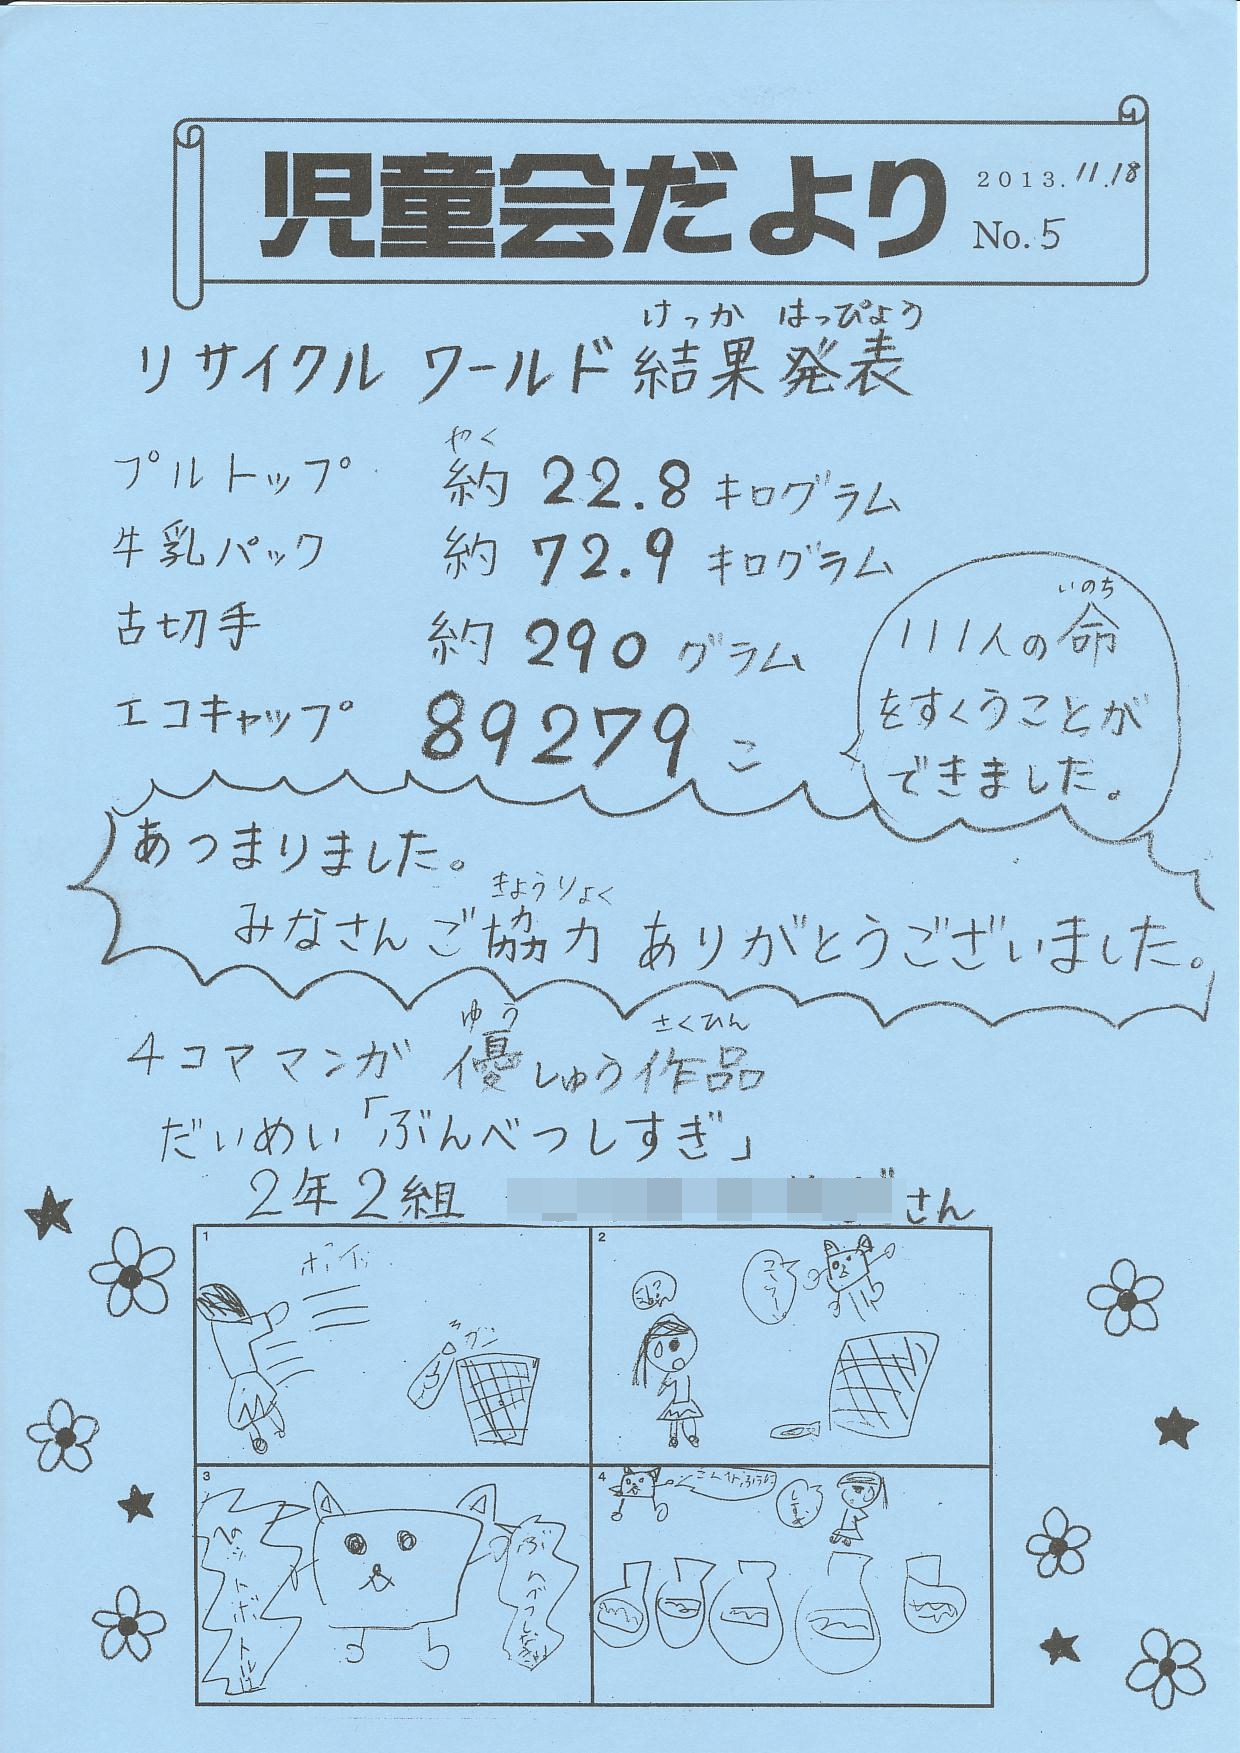 児童会だより 2013.11.18
No.5
けっか はっぴょう
リサイクル ワールド 結果発表
やく
プルトップ 約 22.8 キログラム
牛乳パック 約 72.9 キログラム
古切手 約 290 グラム
エコキャップ 89279 こ
いのち
111人の命
をすくうことが
できました。
あつまりました。
きょうりょく
みなさん ご協力 ありがとうございました。
ゆう さくひん
4コママンガ 優しゅう作品
だいめい「ぶんべつしすぎ」
2年2組
さん
1
ポイッ
2
コラー
3
ペットボトルは
ぶんべつしなさい
4
こんなふうに